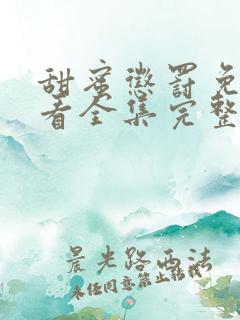 甜蜜惩罚免
看全集完整
晨光路西法
未经同意禁止转载